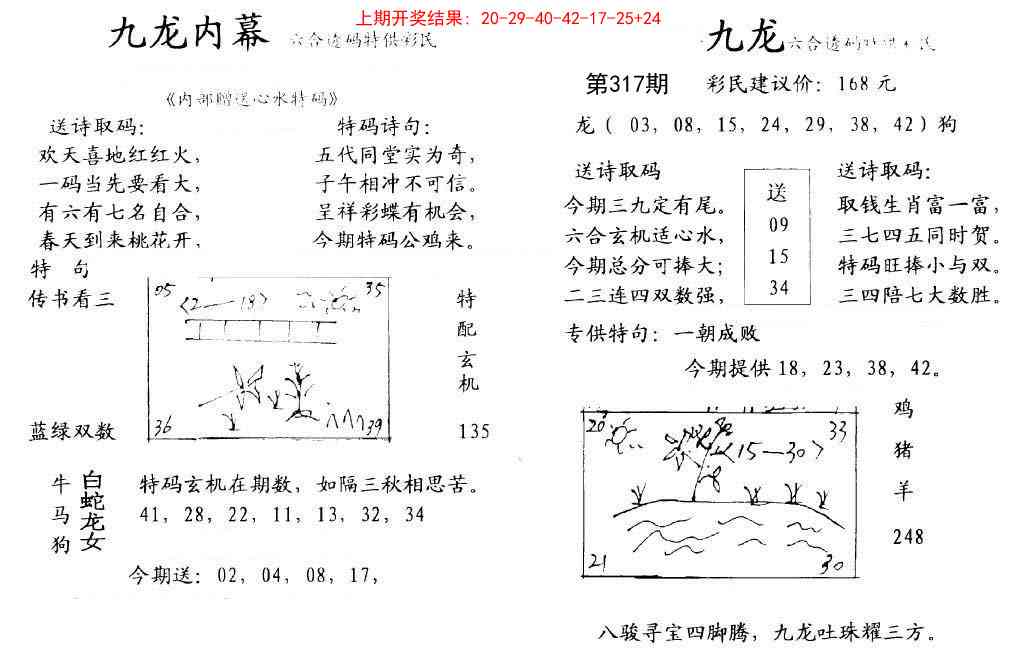 上期开奖结果：20-29-40-42-17-25+24
九龙内幕 六合透码特供彩民
《内部赠送心水特码》
送诗取码：
欢天喜地红红火，
一码当先要看大，
有六有七名自合，
春天到来桃花开，
特码诗句：
五代同堂实为奇，
子午相冲不可信。
呈祥彩蝶有机会，
今期特码公鸡来。
特 句
传书看三
蓝绿双数
05
35
〈2—18〉
36
39
特
配
玄
机
135
牛
马
狗
白蛇龙女
特码玄机在期数，如隔三秋相思苦。
41，28，22，11，13，32，34
今期送：02，04，08，17，
九龙 六合透码特供彩民
第317期 彩民建议价：168元
龙（ 03，08，15，24，29，38，42）狗
送诗取码
今期三九定有尾。
六合玄机适心水，
今期总分可捧大；
二三连四双数强，
送
09
15
34
送诗取码：
取钱生肖富一富，
三七四五同时贺。
特码旺捧小与双。
三四陪七大数胜。
专供特句：一朝成败
今期提供18，23，38，42。
20
33
〈15—30〉
21
30
鸡
猪
羊
248
八骏寻宝四脚腾，九龙吐珠耀三方。